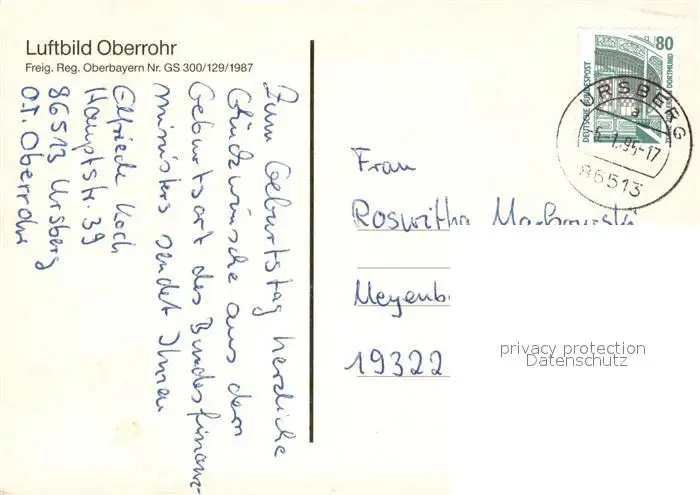 Luftbild Oberrohr
Freig. Reg. Oberbayern Nr. GS 300/129/1987
Zum Geburtstag herzliche
Glückwünsche aus dem
Geburtsort des Bundesfinanz-
ministers sendet Ihnen
Elfriede Koch
Hauptstr. 39
86513 Ursberg
O.T. Oberrohr
80
DEUTSCHE BUNDESPOST
DORTMUND
URSBERG
a
5-1.95-17
86513
Frau
Roswitha
Meyenb
19322
privacy protection
Datenschutz